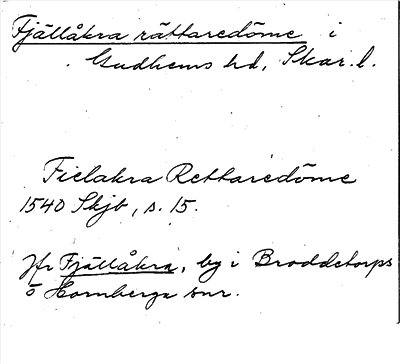 Fjällåkra rättaredöme i
Gudhems hd, Skar. l.
Fielakra Rettaredöme
1540 Skjb, s. 15.
Jfr Fjällåkra, by i Broddetorps
o Hornborga snr.